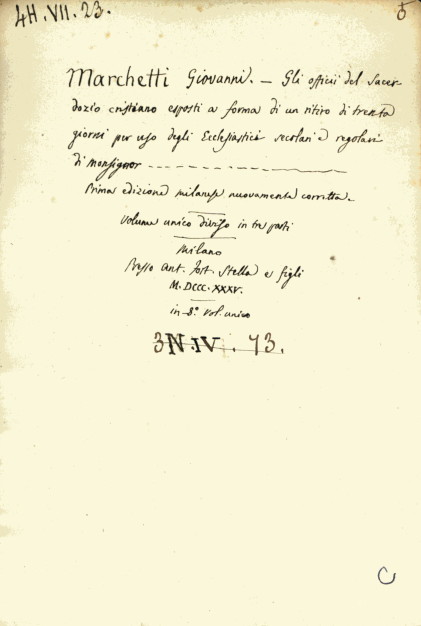 4H.VII.23.
Marchetti Giovanni. — Gli officii del Sacer-
dozio cristiano esposti a forma di un ritiro di trenta
giorni per uso degli Ecclesiastici secolari e regolari
di Monsignor
Prima edizione milanese nuovamente corretta.
Volume unico diviso in tre parti
Milano
Presso Ant. Fort. Stella e figli
M.DCCC.XXXV.
in 8.° vol. unico
3N.IV. 73.
C